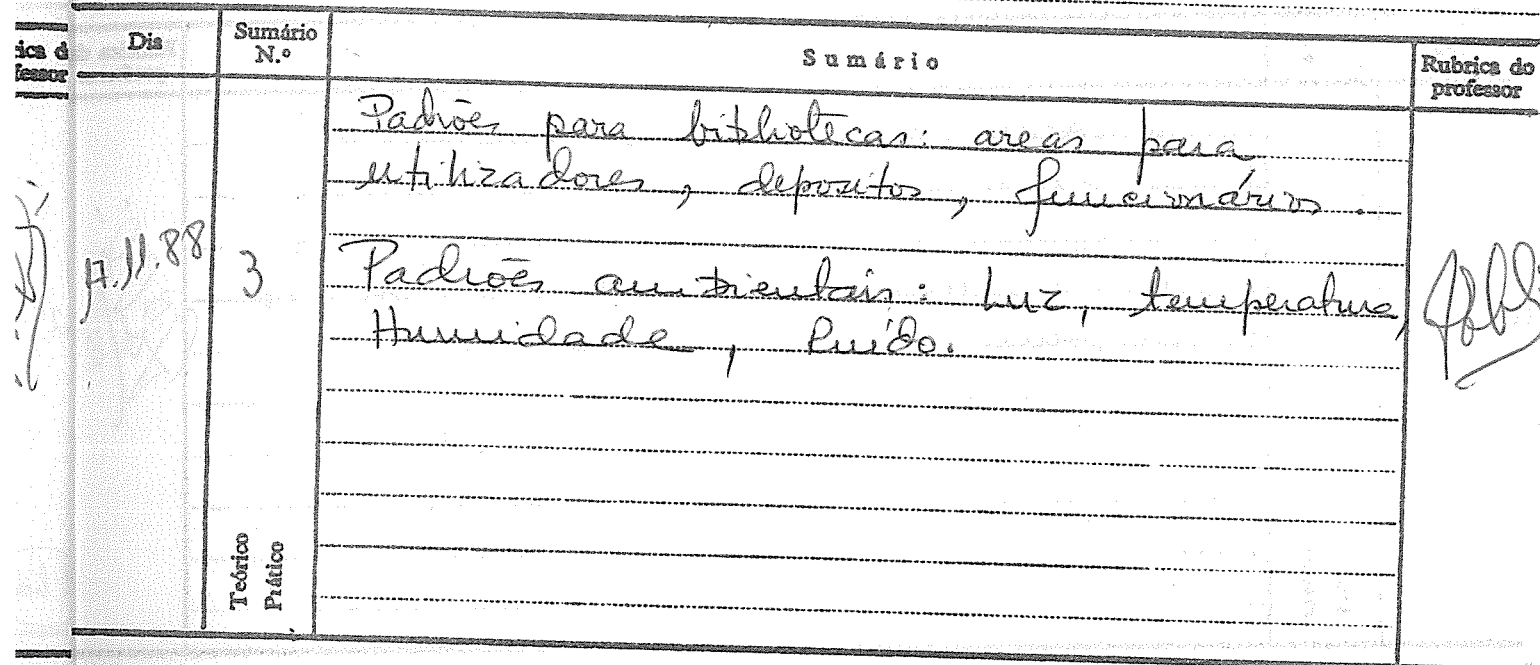 Dia
Sumário
N.º
Sumário
Rubrica do
professor
17.11.88
3
Padrões para bibliotecas: areas para
utilizadores, depositos, funcionários.
Padrões ambientais: Luz, temperatura,
Humidade, Ruído.
Teórico
Prático